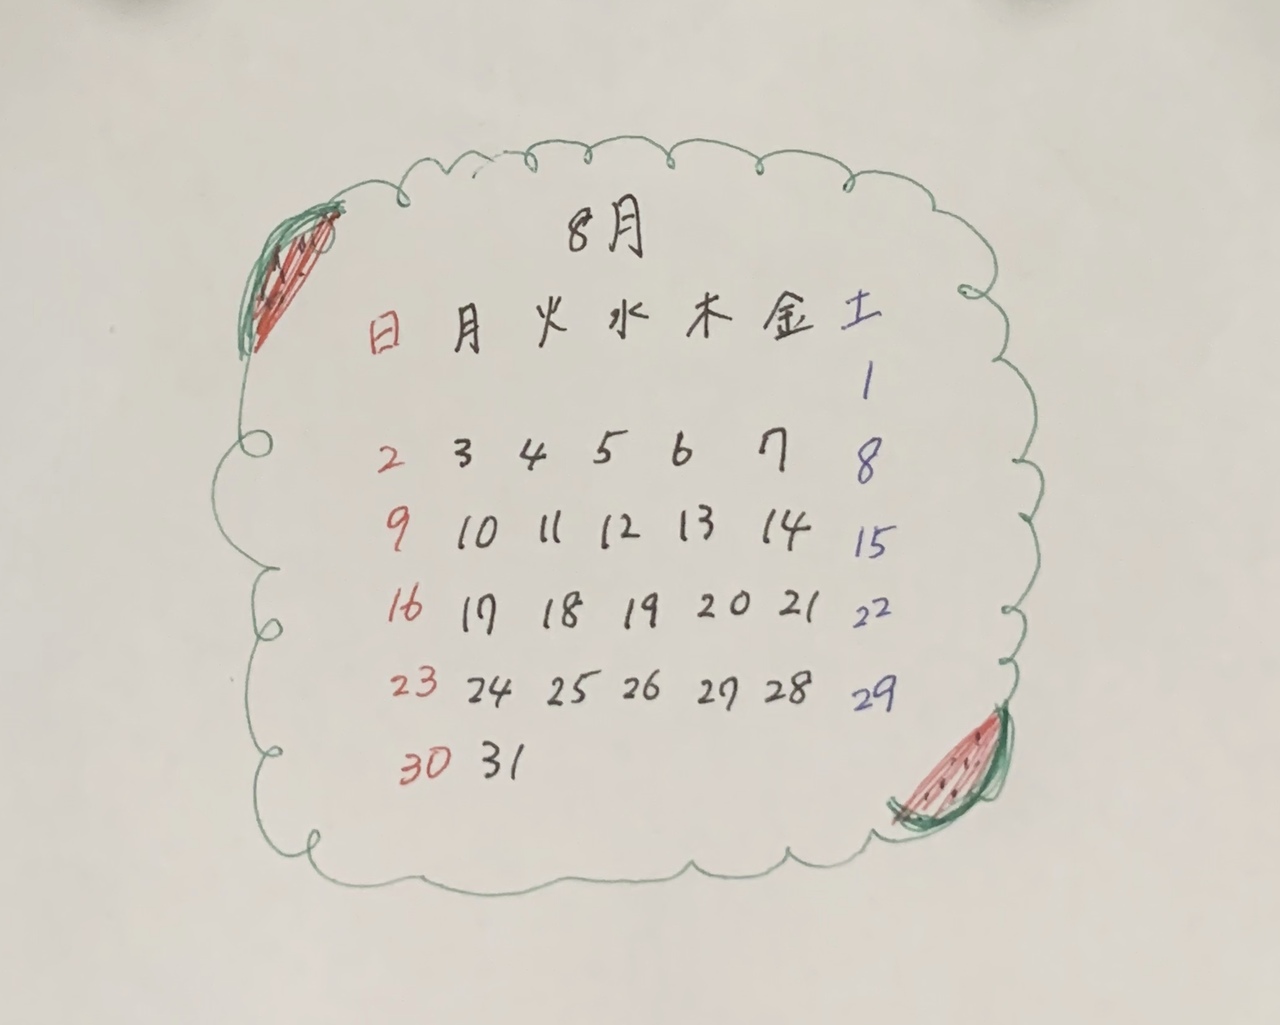 8月
日 月 火 水 木 金 土
1
2 3 4 5 6 7 8
9 10 11 12 13 14 15
16 17 18 19 20 21 22
23 24 25 26 27 28 29
30 31